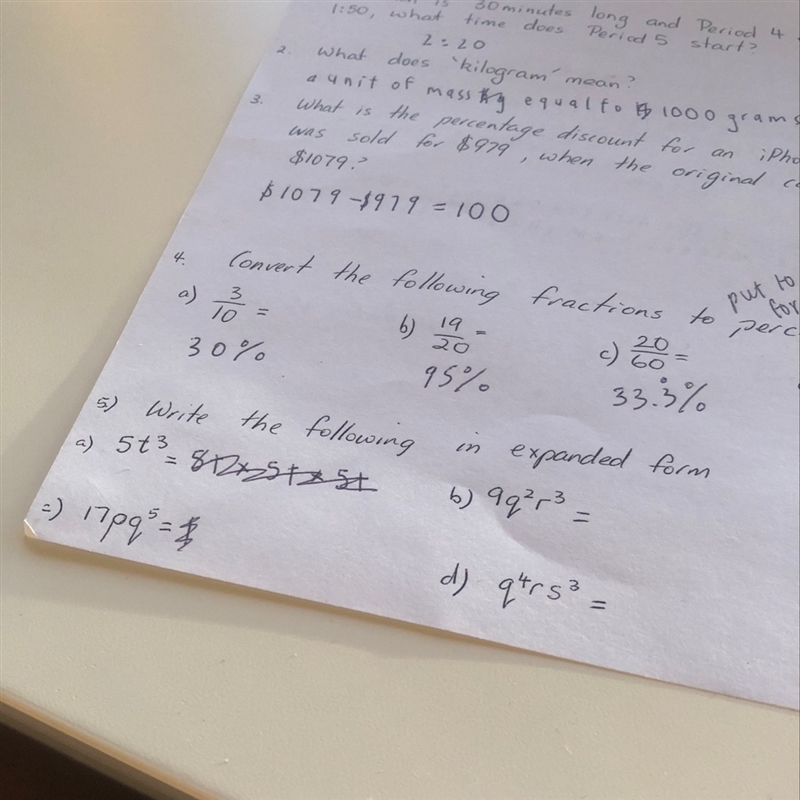 is 30 minutes long and Period 4
1:50, what time does Period 5 start?
2:20
2. What does 'kilogram' mean?
a unit of mass equal to 1000 grams
3. What is the percentage discount for an iPho
was sold for $979, when the original c
$1079?
$1079-$979 = 100
put to
for
4. Convert the following fractions to perc
a) 3/10 = b) 19/20 = c) 20/60 =
30% 95% 33.3̊%
5) Write the following in expanded form
a) 5t³ = b) 9q²r³ =
c) 17pq⁵ = d) q⁴rs³ =